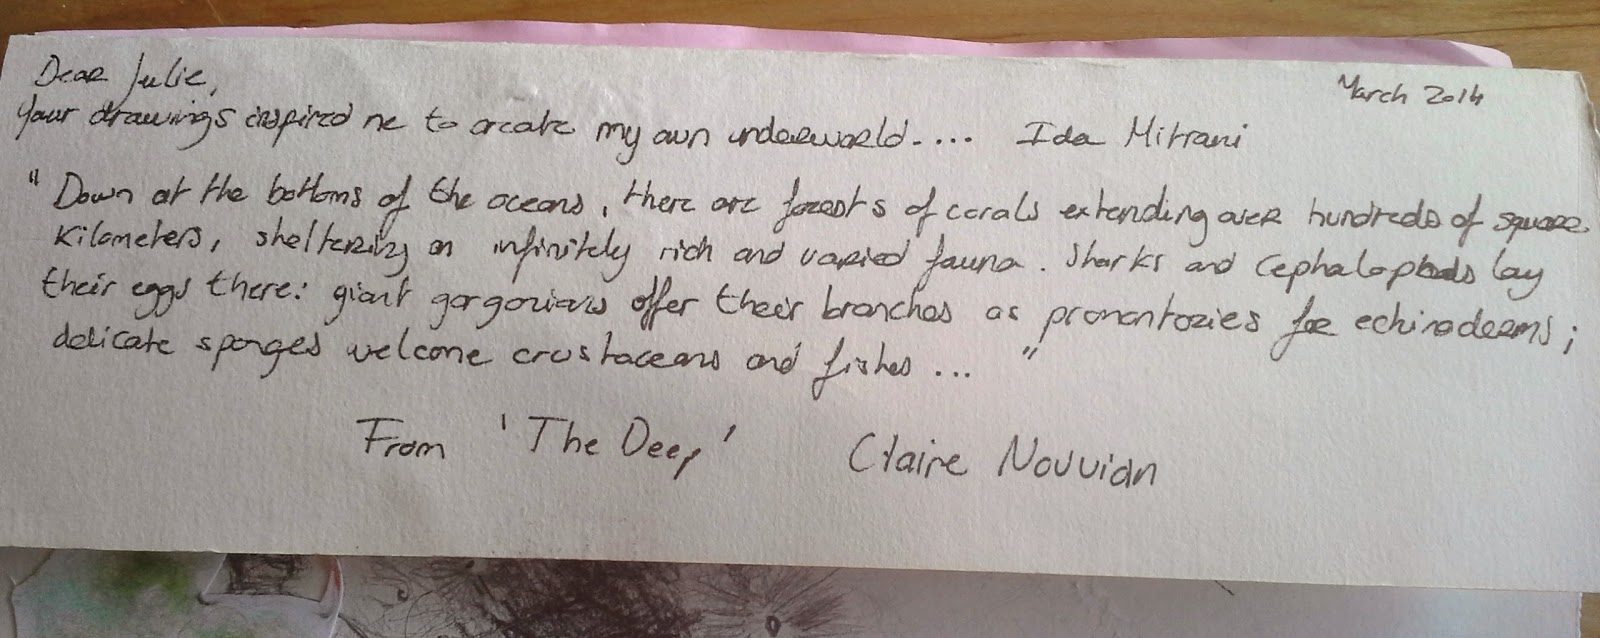 Dear Julie,
March 2014
Your drawings inspired me to create my own underworld.... Ida Mitrani
" Down at the bottoms of the oceans, there are forests of corals extending over hundreds of square
Kilometers, sheltering an infinitely rich and varied fauna. Sharks and Cephalopods lay
their eggs there: giant gorgonians offer their branches as promontories for echinoderms;
delicate sponges welcome crustaceans and fishes ... "
From 'The Deep' Claire Nouvian